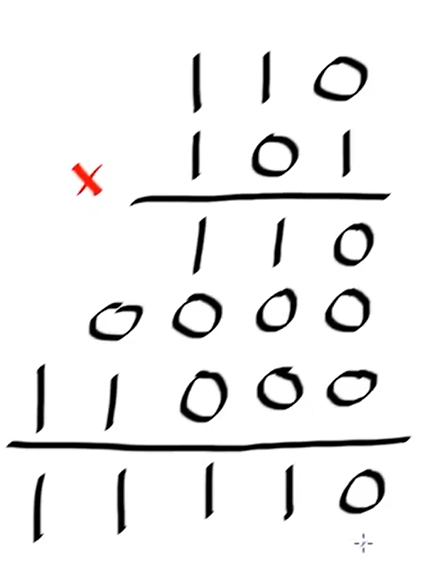 110
× 101
110
0000
11000
11110